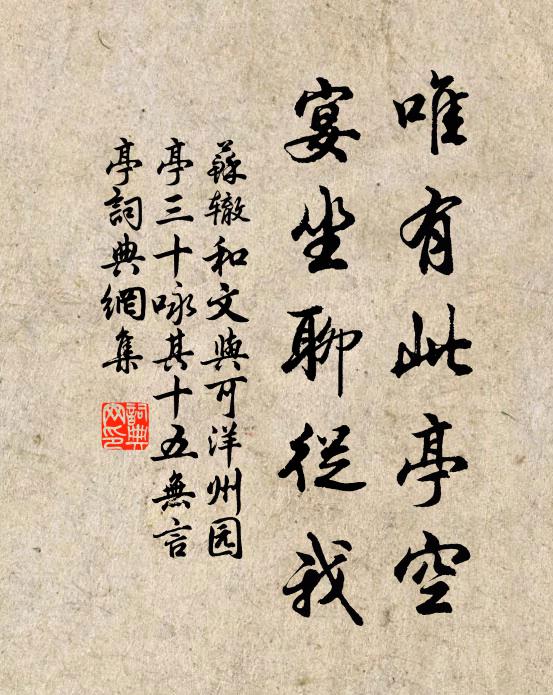 唯有此亭空
宴坐聊從我
蘇辙和文與可洋州园
亭三十咏其十五無言
亭詞典網集
詞典网印